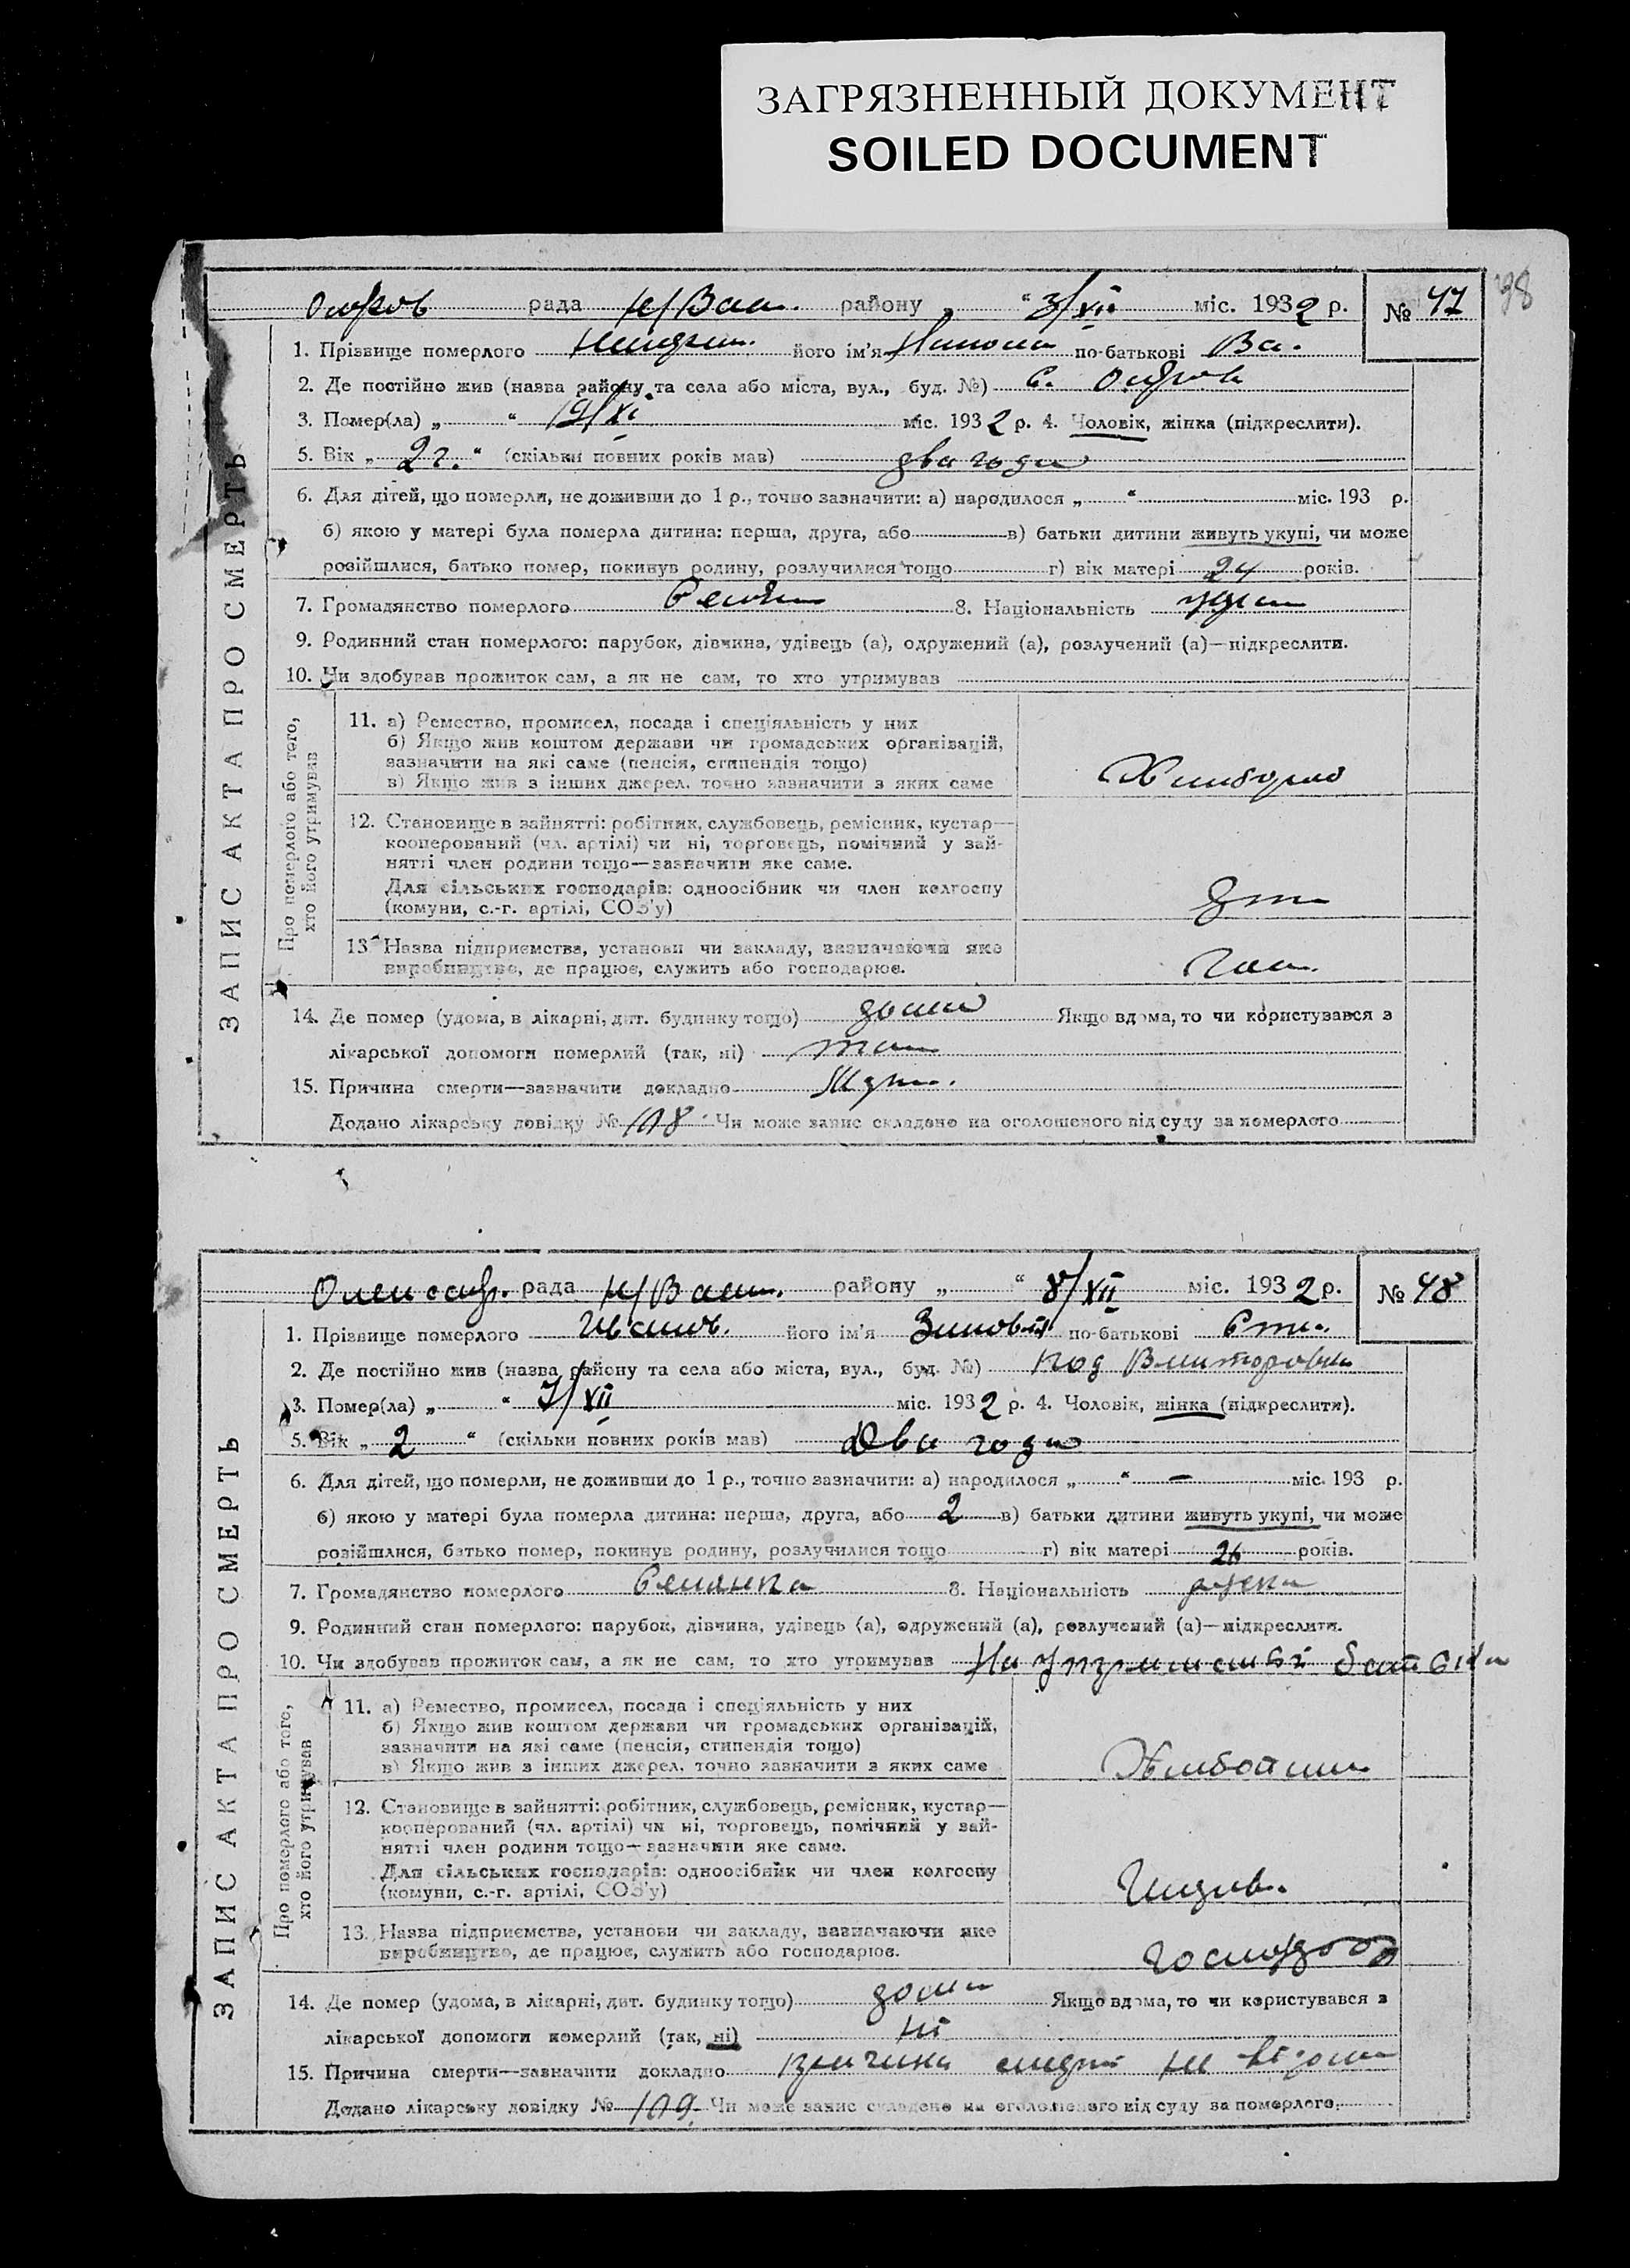 ЗАГРЯЗНЕННЫЙ ДОКУМЕНТ
SOILED DOCUMENT
38
ЗАПИС АКТА ПРО СМЕРТЬ
рада Н/Вас. району „ “ 3/XII міс. 1932 р. № 47
1. Прізвище померлого його ім'я по-батькові Ва.
2. Де постійно жив (назва району та села або міста, вул., буд. №) с.
3. Помер(ла) „ “ 19/XI міс. 1932 р. 4. Чоловік, жінка (підкреслити).
5. Вік „ 2 г. “ (скільки повних років мав) два года
6. Для дітей, що померли, не доживши до 1 р., точно зазначити: а) народилося „ “ міс. 193 р.
б) якою у матері була померла дитина: перша, друга, або в) батьки дитини живуть укупі, чи може
розійшлися, батько помер, покинув родину, розлучилися тощо г) вік матері 24 років.
7. Громадянство померлого 8. Національність
9. Родинний стан померлого: парубок, дівчина, удівець (а), одружений (а), розлучений (а)—підкреслити.
10. Чи здобував прожиток сам, а як не сам, то хто утримував
Про померлого або того,
хто його утримував
11. а) Ремество, промисел, посада і спеціяльність у них
б) Якщо жив коштом держави чи громадських організацій,
зазначити на які саме (пенсія, стипендія тощо)
в) Якщо жив з інших джерел, точно зазначити з яких саме
12. Становище в зайнятті: робітник, службовець, ремісник, кустар—
кооперований (чл. артілі) чи ні, торговець, помічний у зай-
нятті член родини тощо—зазначити яке саме.
Для сільських господарів: одноосібник чи член колгоспу
(комуни, с.-г. артілі, СОЗ'у)
13 Назва підприємства, установи чи закладу, зазначаючи яке
виробництво, де працює, служить або господарює.
14. Де помер (удома, в лікарні, дит. будинку тощо) дома Якщо вдома, то чи користувався з
лікарської допомоги померлий (так, ні) так
15. Причина смерти—зазначити докладно
Додано лікарську довідку № 108 Чи може запис складено на оголошеного від суду за померлого
ЗАПИС АКТА ПРО СМЕРТЬ
рада Н/Васил. району „ “ 8/XII міс. 1932 р. № 48
1. Прізвище померлого Іванов. його ім'я Зиновія по-батькові
2. Де постійно жив (назва району та села або міста, вул., буд. №)
3. Помер(ла) „ “ 7/XII міс. 1932 р. 4. Чоловік, жінка (підкреслити).
5. Вік „ 2 “ (скільки повних років мав) Два года
6. Для дітей, що померли, не доживши до 1 р., точно зазначити: а) народилося „ “ — міс. 193 р.
б) якою у матері була померла дитина: перша, друга, або 2 в) батьки дитини живуть укупі, чи може
розійшлися, батько помер, покинув родину, розлучилися тощо г) вік матері 26 років.
7. Громадянство померлого Селянка 8. Національність
9. Родинний стан померлого: парубок, дівчина, удівець (а), одружений (а), розлучений (а)—підкреслити.
10. Чи здобував прожиток сам, а як не сам, то хто утримував На
Про померлого або того,
хто його утримував
11. а) Ремество, промисел, посада і спеціяльність у них
б) Якщо жив коштом держави чи громадських організацій,
зазначити на які саме (пенсія, стипендія тощо)
в) Якщо жив з інших джерел, точно зазначити з яких саме
12. Становище в зайнятті: робітник, службовець, ремісник, кустар—
кооперований (чл. артілі) чи ні, торговець, помічний у зай-
нятті член родини тощо—зазначити яке саме.
Для сільських господарів: одноосібник чи член колгоспу
(комуни, с.-г. артілі, СОЗ'у)
13. Назва підприємства, установи чи закладу, зазначаючи яке
виробництво, де працює, служить або господарює.
14. Де помер (удома, в лікарні, дит. будинку тощо) дома Якщо вдома, то чи користувався з
лікарської допомоги померлий (так, ні) ні
15. Причина смерти—зазначити докладно причина смерті не відома
Додано лікарську довідку № 109 Чи може запис складено на оголошеного від суду за померлого.